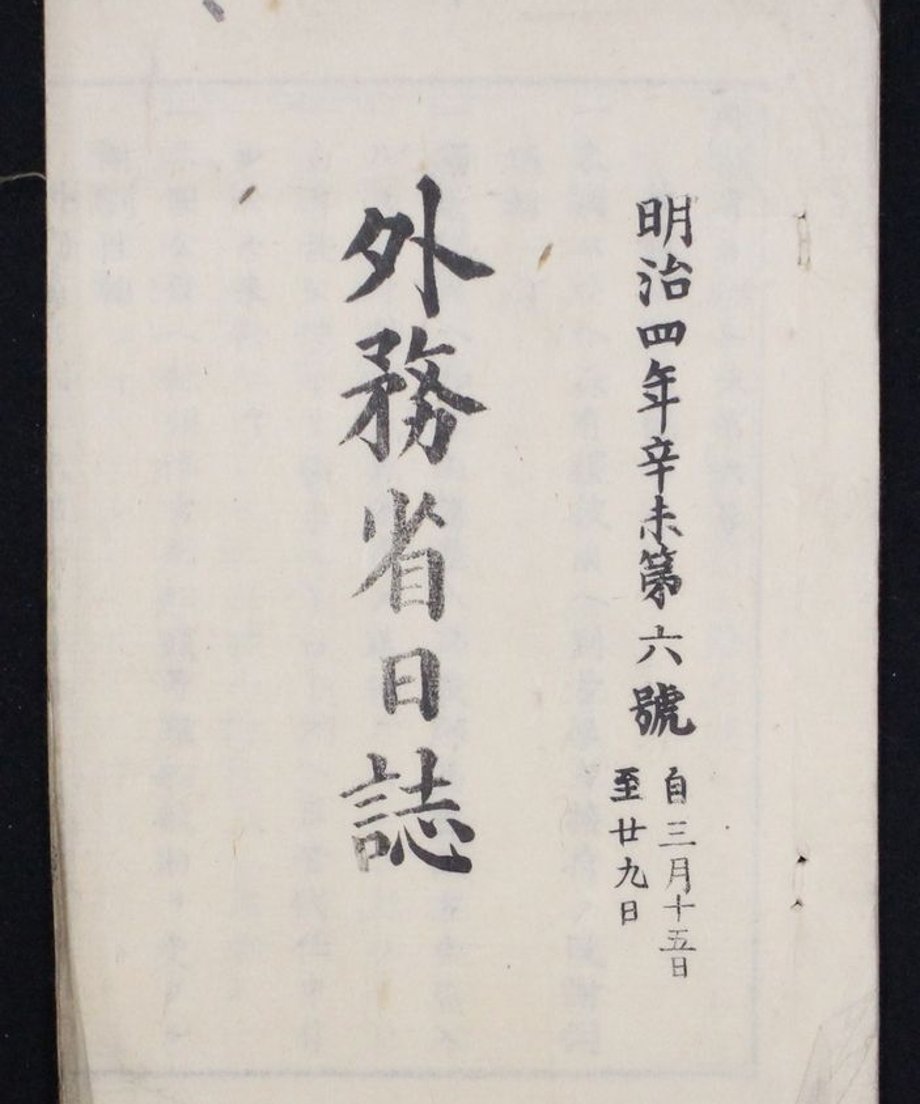 明治四年辛未第六號
自三月十五日
至廿九日
外務省日誌